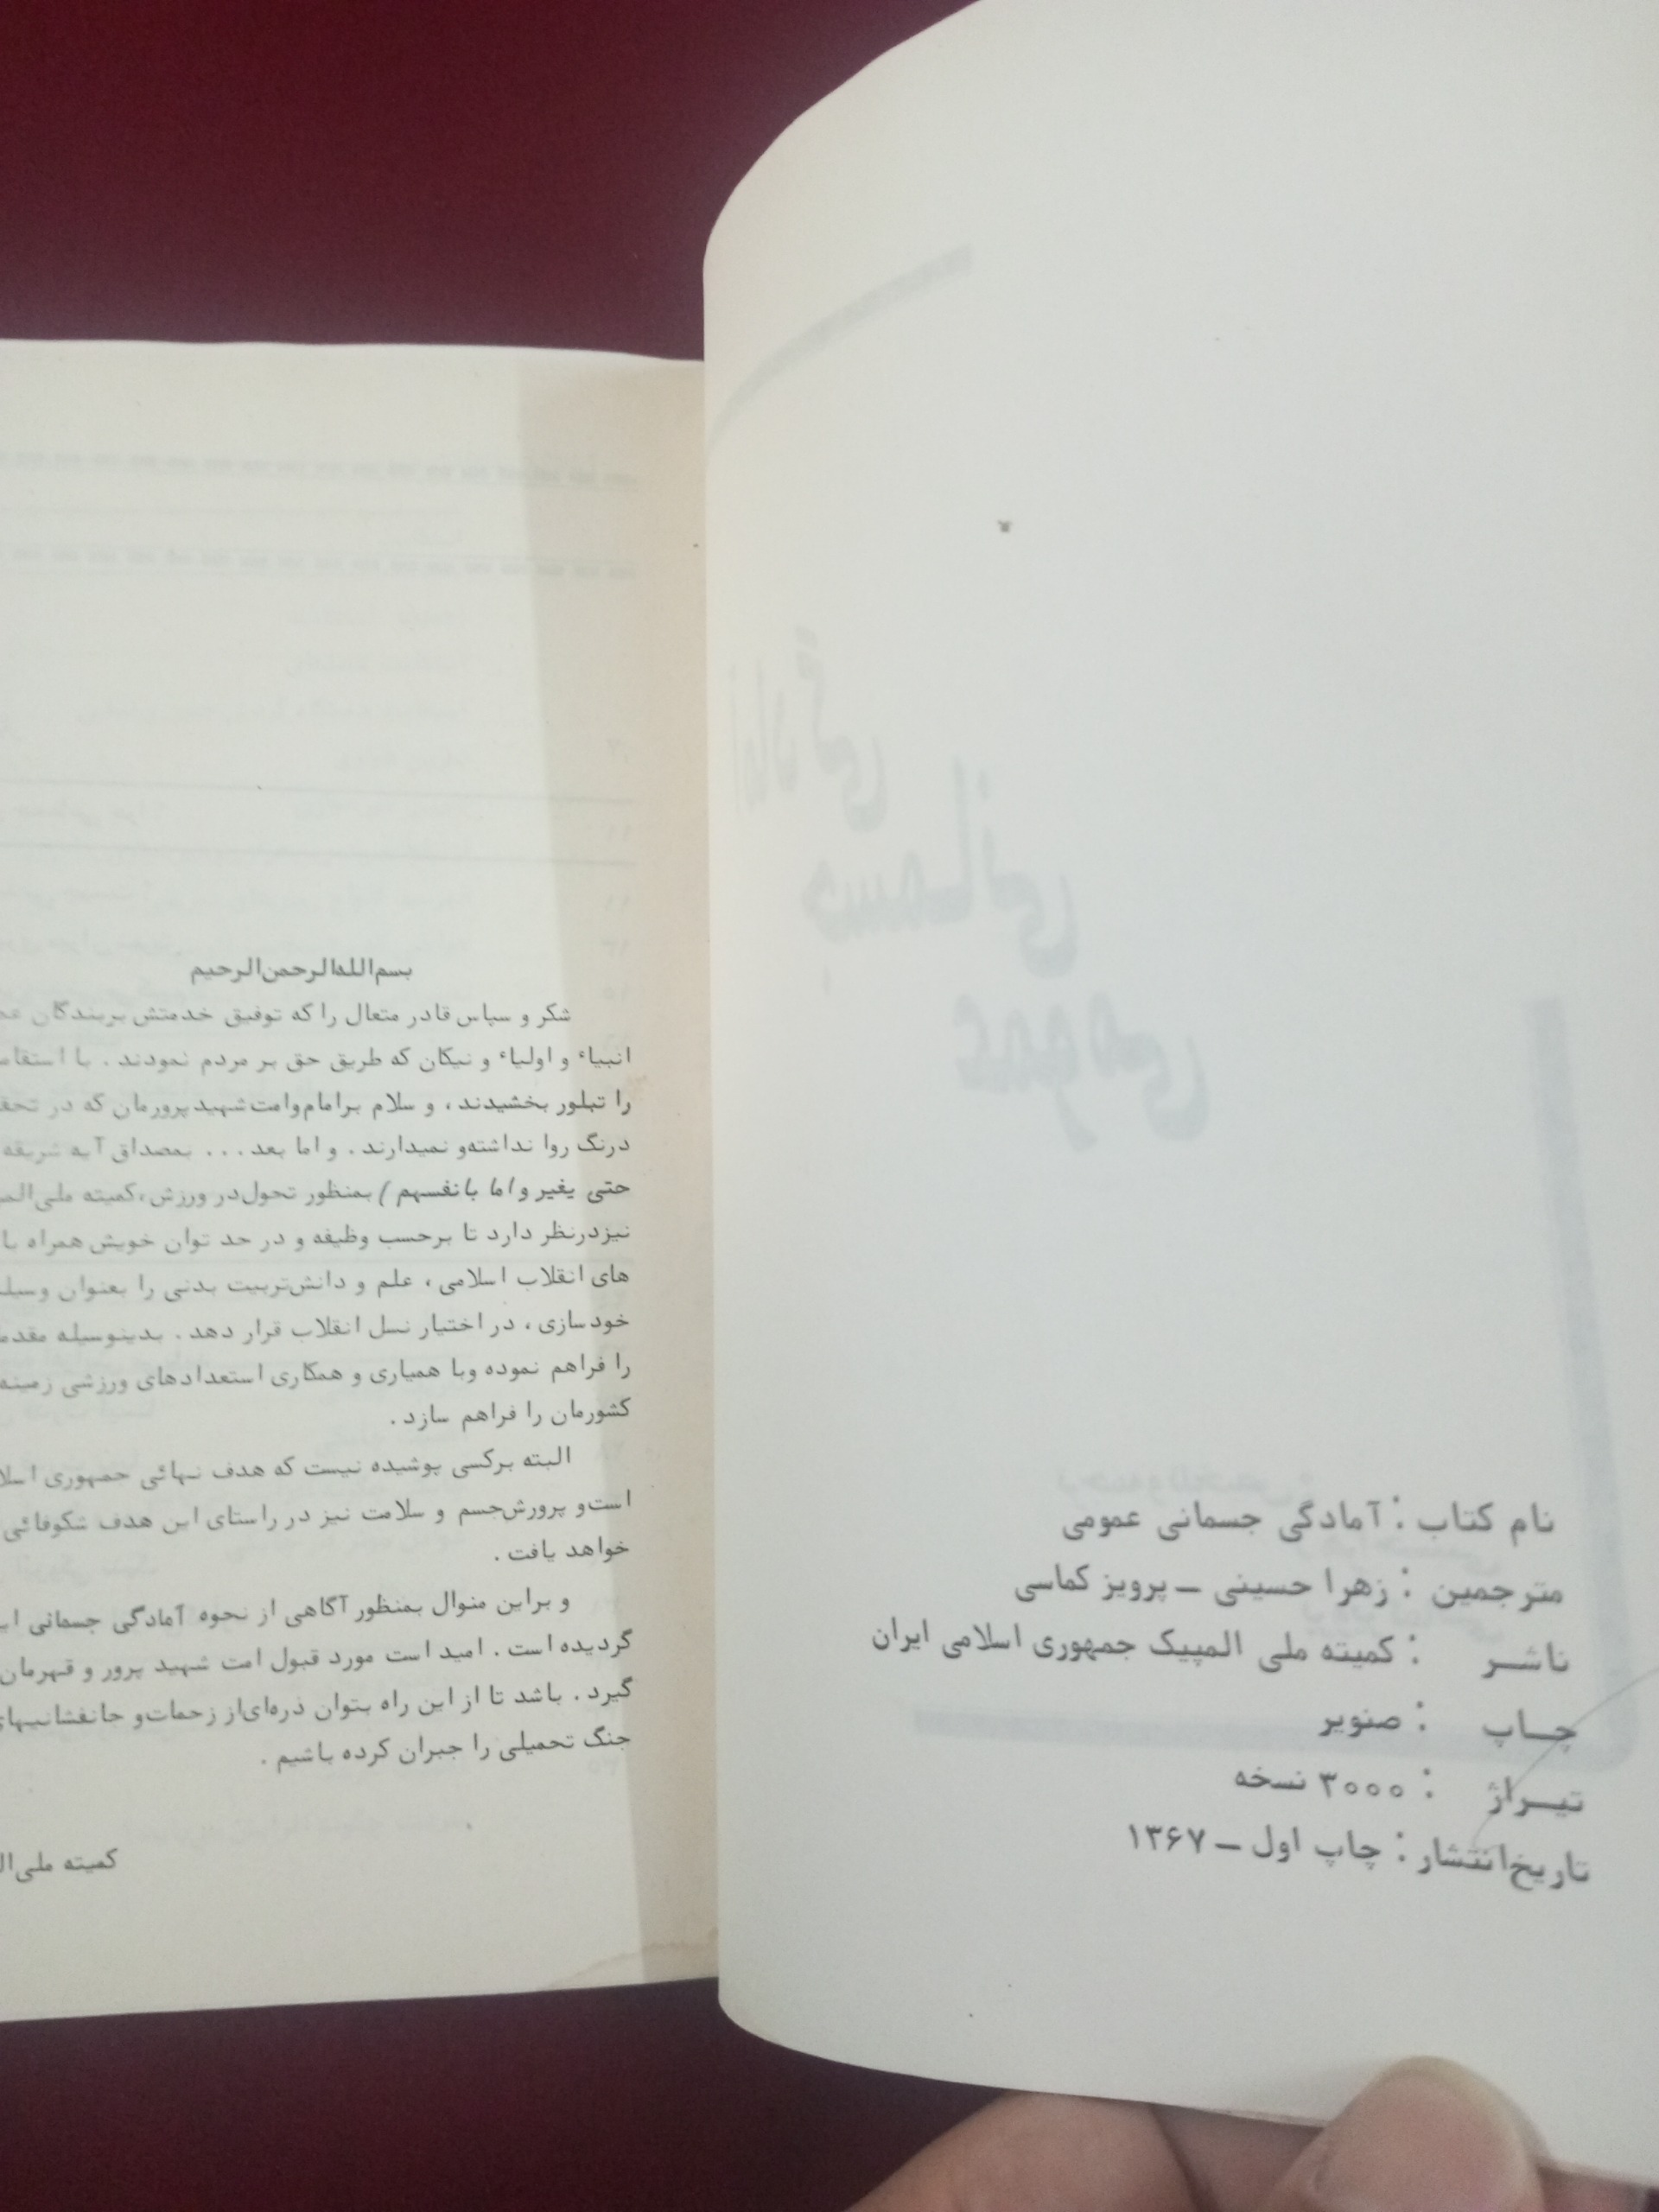 نام کتاب : آمادگی جسمانی عمومی
مترجمین : زهرا حسینی ــ پرویز کماسی
ناشر : کمیته ملی المپیک جمهوری اسلامی ایران
چاپ : صنوبر
تیراژ : ۳۰۰۰ نسخه
تاریخ‌انتشار : چاپ اول ــ ۱۳۶۷
بسم‌الله‌الرحمن‌الرحیم
شکر و سپاس قادر متعال را که توفیق خدمتش بربندگان
انبیاء و اولیاء و نیکان که طریق حق بر مردم نمودند . با
را تبلور بخشیدند ، و سلام برامام‌وامت‌شهیدپرورمان که در
درنگ روا نداشته‌و نمیدارند . و اما بعد ... بمصداق آیه شریفه
حتی یغیر واما بانفسهم ) بمنظور تحول‌در ورزش ،کمیته ملی
نیزدرنظر دارد تا برحسب وظیفه و در حد توان خویش همراه با
های انقلاب اسلامی ، علم و دانش‌تربیت بدنی را بعنوان
خودسازی ، در اختیار نسل انقلاب قرار دهد . بدینوسیله
را فراهم نموده وبا همیاری و همکاری استعدادهای ورزشی زمینه
کشورمان را فراهم سازد .
البته برکسی پوشیده نیست که هدف نهائی جمهوری
است‌و پرورش‌جسم و سلامت نیز در راستای این هدف شکوفائی
خواهد یافت .
و براین منوال بمنظور آگاهی از نحوه آمادگی جسمانی
گردیده است . امید است مورد قبول امت شهید پرور و قهرمان
گیرد . باشد تا از این راه بتوان ذره‌ای‌از زحمات‌و جانفشانیهای
جنگ تحمیلی را جبران کرده باشیم .
کمیته ملی